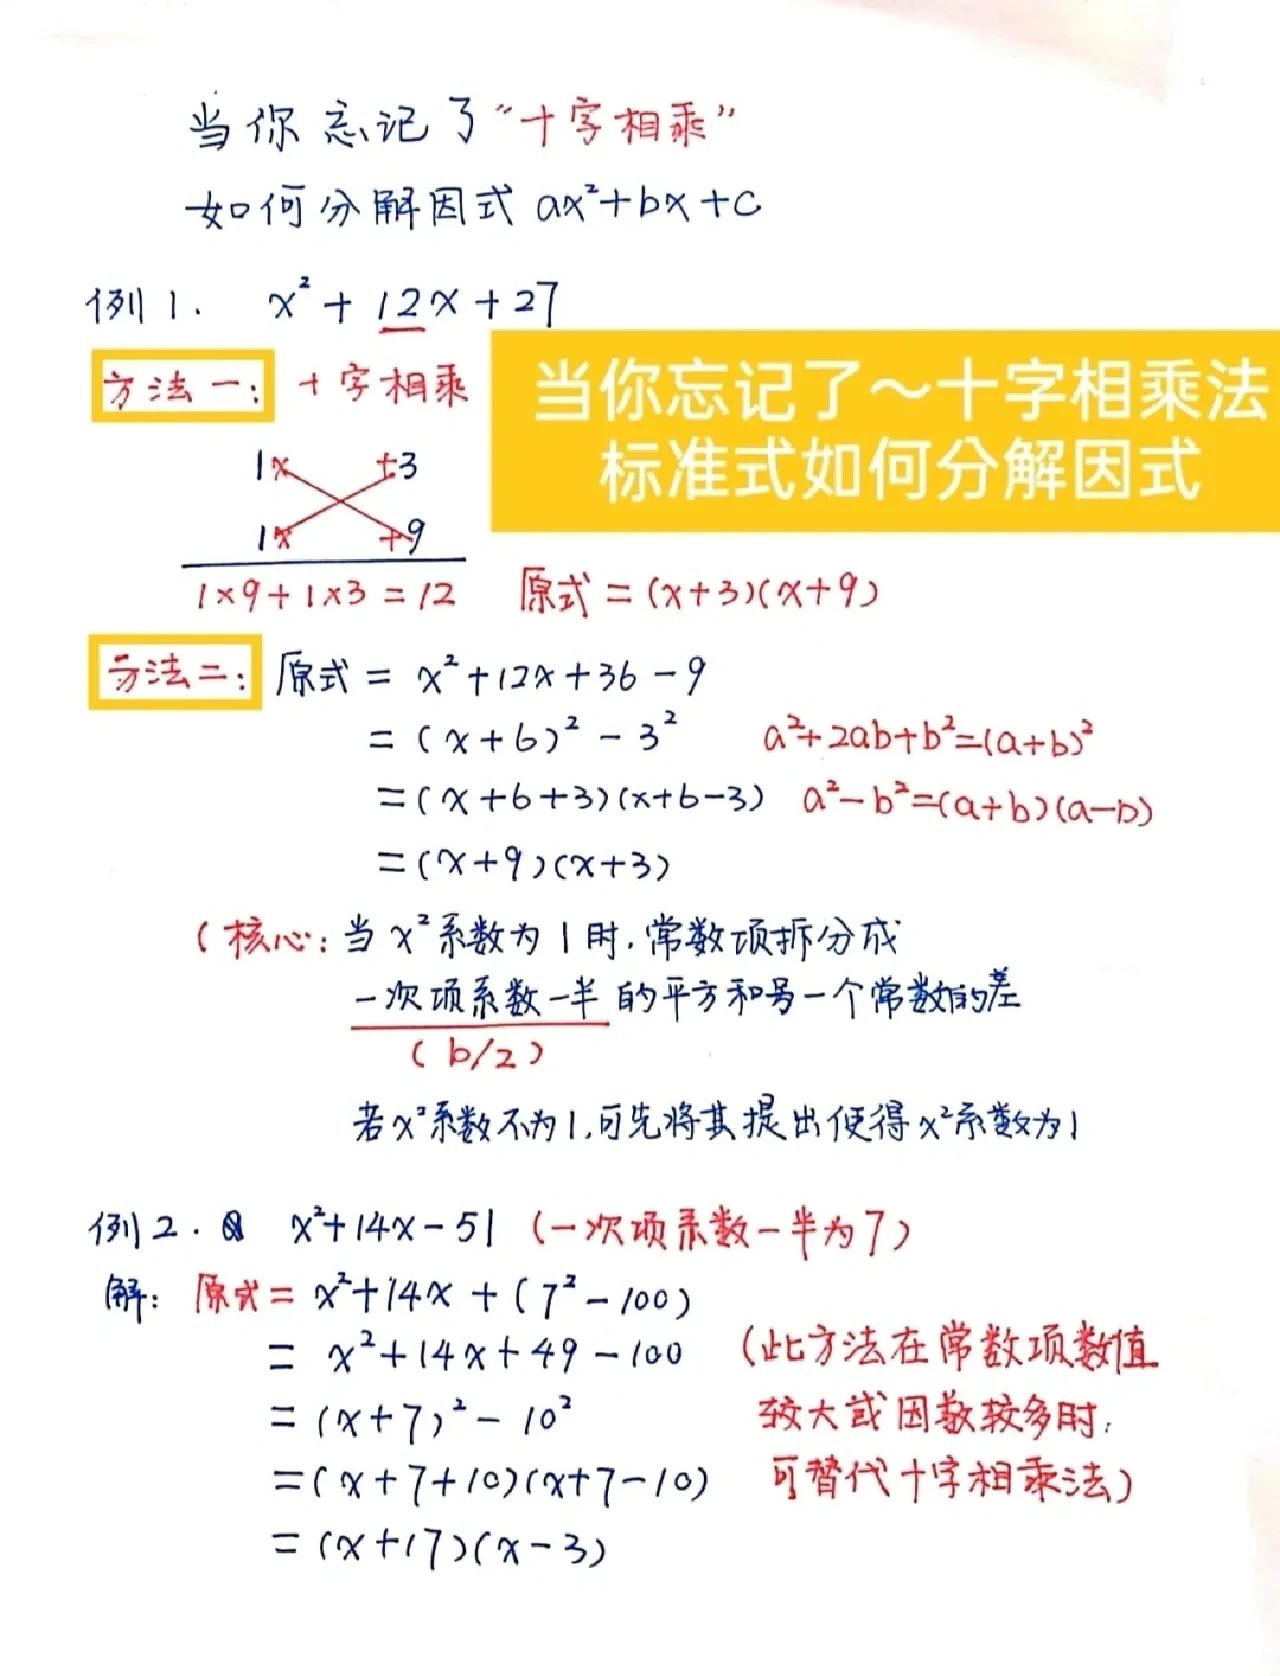 当你忘记了“十字相乘”
如何分解因式 ax²+bx+c
例1. x²+12x+27
方法一: 十字相乘
当你忘记了～十字相乘法
标准式如何分解因式
1x +3
1x +9
1×9+1×3=12 原式=(x+3)(x+9)
方法二: 原式= x²+12x+36-9
=(x+6)²-3² a²+2ab+b²=(a+b)²
=(x+6+3)(x+6-3) a²-b²=(a+b)(a-b)
=(x+9)(x+3)
(核心: 当x²系数为1时,常数项拆分成
一次项系数一半的平方和另一个常数的差
(b/2)
若x²系数不为1,可先将其提出使得x²系数为1
例2. x²+14x-51 (一次项系数一半为7)
解: 原式= x²+14x+(7²-100)
= x²+14x+49-100 (此方法在常数项数值
=(x+7)²-10² 较大或因数较多时,
=(x+7+10)(x+7-10) 可替代十字相乘法)
=(x+17)(x-3)